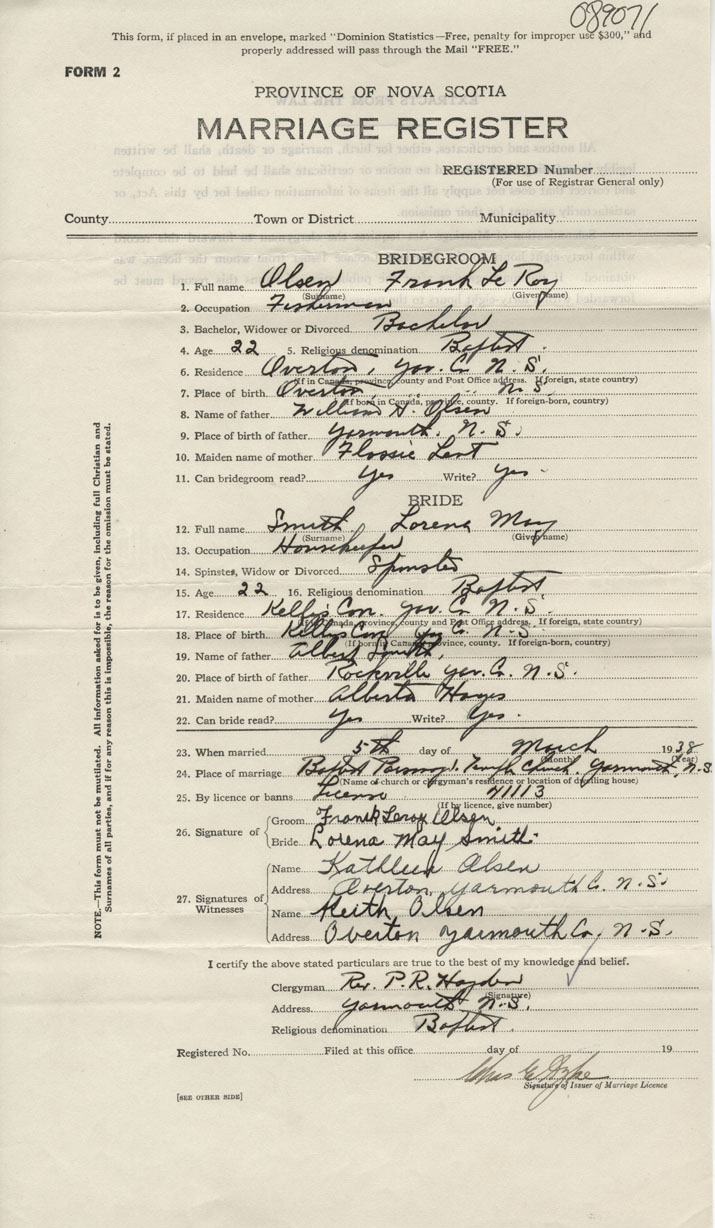 089071
This form, if placed in an envelope, marked "Dominion Statistics—Free, penalty for improper use $300," and
properly addressed will pass through the Mail "FREE."
FORM 2
PROVINCE OF NOVA SCOTIA
MARRIAGE REGISTER
REGISTERED Number
(For use of Registrar General only)
County Town or District Municipality
BRIDEGROOM
1. Full name Olsen Frank Le Roy
(Surname) (Given name)
2. Occupation Fisherman
3. Bachelor, Widower or Divorced Bachelor
4. Age 22 5. Religious denomination Baptist.
6. Residence Overton, Yar. Co N. S.
(If in Canada, province, county and Post Office address. If foreign, state country)
7. Place of birth Overton, N. S.
(If born in Canada, province, county. If foreign-born, country)
8. Name of father William H. Olsen
9. Place of birth of father Yarmouth, N. S.
10. Maiden name of mother Flossie Lent
11. Can bridegroom read? Yes Write? Yes.
BRIDE
12. Full name Smith Lorena May
(Surname) (Given name)
13. Occupation Housekeeper
14. Spinster, Widow or Divorced Spinster
15. Age 22 16. Religious denomination Baptist
17. Residence Yar. Co N. S.
(If in Canada, province, county and Post Office address. If foreign, state country)
18. Place of birth Co. N. S.
(If born in Canada, province, county. If foreign-born, country)
19. Name of father Albert Smith,
20. Place of birth of father Rockville Yar. Co. N. S.
21. Maiden name of mother Alberta Hayes
22. Can bride read? Yes Write? Yes.
23. When married 5th day of March 1938
(Month) (Year)
24. Place of marriage Baptist Yarmouth, N.S.
(Name of church or clergyman's residence or location of dwelling house)
25. By licence or banns License 41113
(If by licence, give number)
26. Signature of Groom Frank Leroy Olsen
Bride Lorena May Smith
27. Signatures of Witnesses
Name Kathleen Olsen
Address Overton, Yarmouth Co. N. S.
Name Keith Olsen
Address Overton Yarmouth Co, N. S.
I certify the above stated particulars are true to the best of my knowledge and belief.
Clergyman Rev. P. R. Hayden
(Signature)
Address Yarmouth N. S.
Religious denomination Baptist.
Registered No. Filed at this office day of 19
Signature of Issuer of Marriage Licence
[SEE OTHER SIDE]
NOTE.—This form must not be mutilated. All information asked for is to be given, including full Christian and
Surnames of all parties, and if for any reason this is impossible, the reason for the omission must be stated.